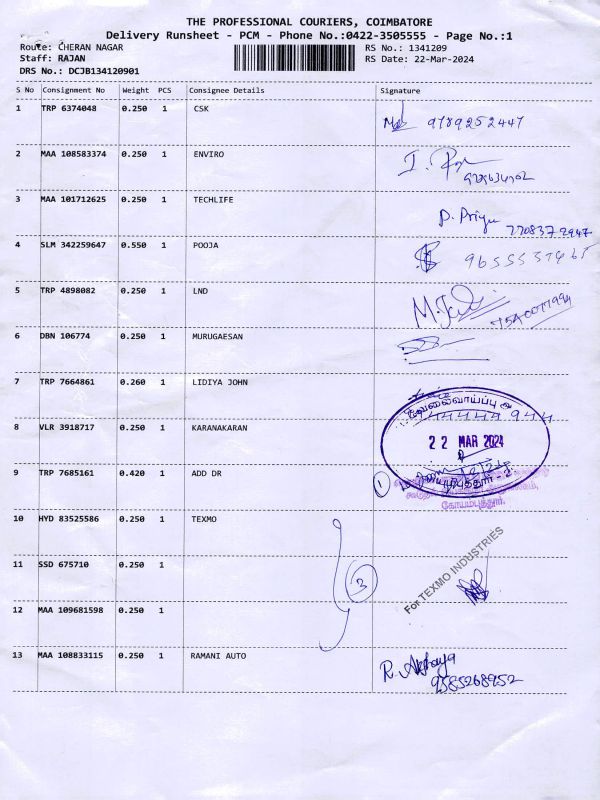 THE PROFESSIONAL COURIERS, COIMBATORE
Delivery Runsheet - PCM - Phone No.:0422-3505555 - Page No.:1
Route: CHERAN NAGAR RS No.: 1341209
Staff: RAJAN RS Date: 22-Mar-2024
DRS No.: DCJB134120901
S No Consignment No Weight PCS Consignee Details Signature
1 TRP 6374048 0.250 1 CSK
9789252447
2 MAA 108583374 0.250 1 ENVIRO
3 MAA 101712625 0.250 1 TECHLIFE
P. Priya
4 SLM 342259647 0.550 1 POOJA
5 TRP 4898082 0.250 1 LND
6 DBN 106774 0.250 1 MURUGAESAN
7 TRP 7664861 0.260 1 LIDIYA JOHN
வேலைவாய்ப்பு அ
8 VLR 3918717 0.250 1 KARANAKARAN
22 MAR 2024
9 TRP 7685161 0.420 1 ADD DR
1
கோயம்புத்தூர்.
10 HYD 83525586 0.250 1 TEXMO
For TEXMO INDUSTRIES
11 SSD 675710 0.250 1
3
12 MAA 109681598 0.250 1
13 MAA 108833115 0.250 1 RAMANI AUTO
R. Akshaya
9585268952